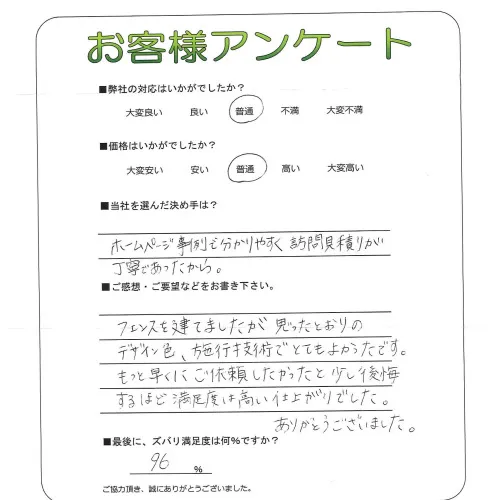 お客様アンケート
■弊社の対応はいかがでしたか?
大変良い 良い 普通 不満 大変不満
■価格はいかがでしたか?
大変安い 安い 普通 高い 大変高い
■当社を選んだ決め手は?
ホームページ事例で分かりやすく訪問見積りが
丁寧であったから。
■ご感想・ご要望などをお書き下さい。
フェンスを建てましたが思ったとおりの
デザイン色、施行技術でとてもよかったです。
もっと早くにご依頼したかったと少し後悔
するほど満足度は高い仕上がりでした。
ありがとうございました。
■最後に、ズバリ満足度は何%ですか?
96 %
ご協力頂き、誠にありがとうございました。